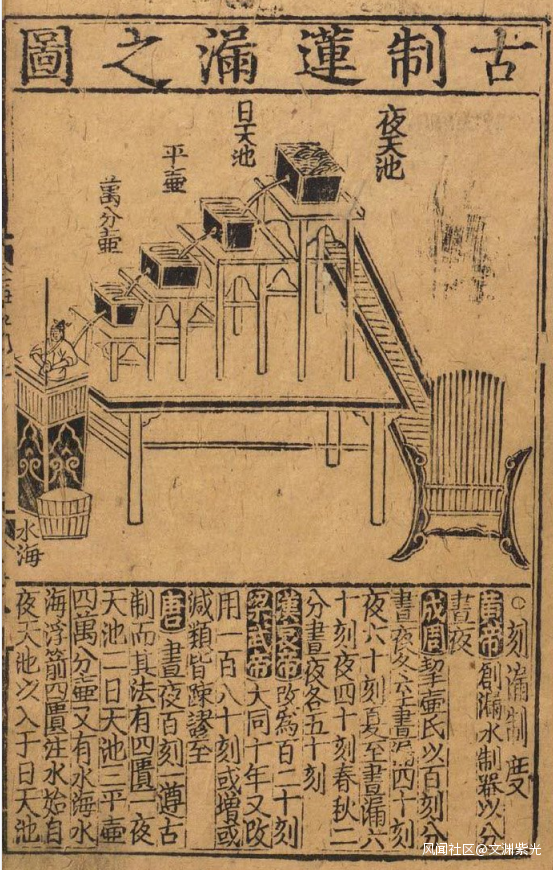 古制蓮漏之圖
夜天池
日天池
平壺
萬分壺
水海
○刻漏制度
黃帝創漏水制器以分
晝夜
成周挈壺氏以百刻分
晝夜冬至晝漏四十刻
夜六十刻夏至晝漏六
十刻夜四十刻春秋二
分晝夜各五十刻
漢哀帝改為百二十刻
梁武帝大同十年又改
用一百八十刻或增或
減類皆疎謬至
唐晝夜百刻一遵古
制而其法有四匱一夜
天池二日天池三平壺
四萬分壺又有水海水
海浮箭四匱注水始自
夜天池以入于日天池
风闻社区@文渊紫光